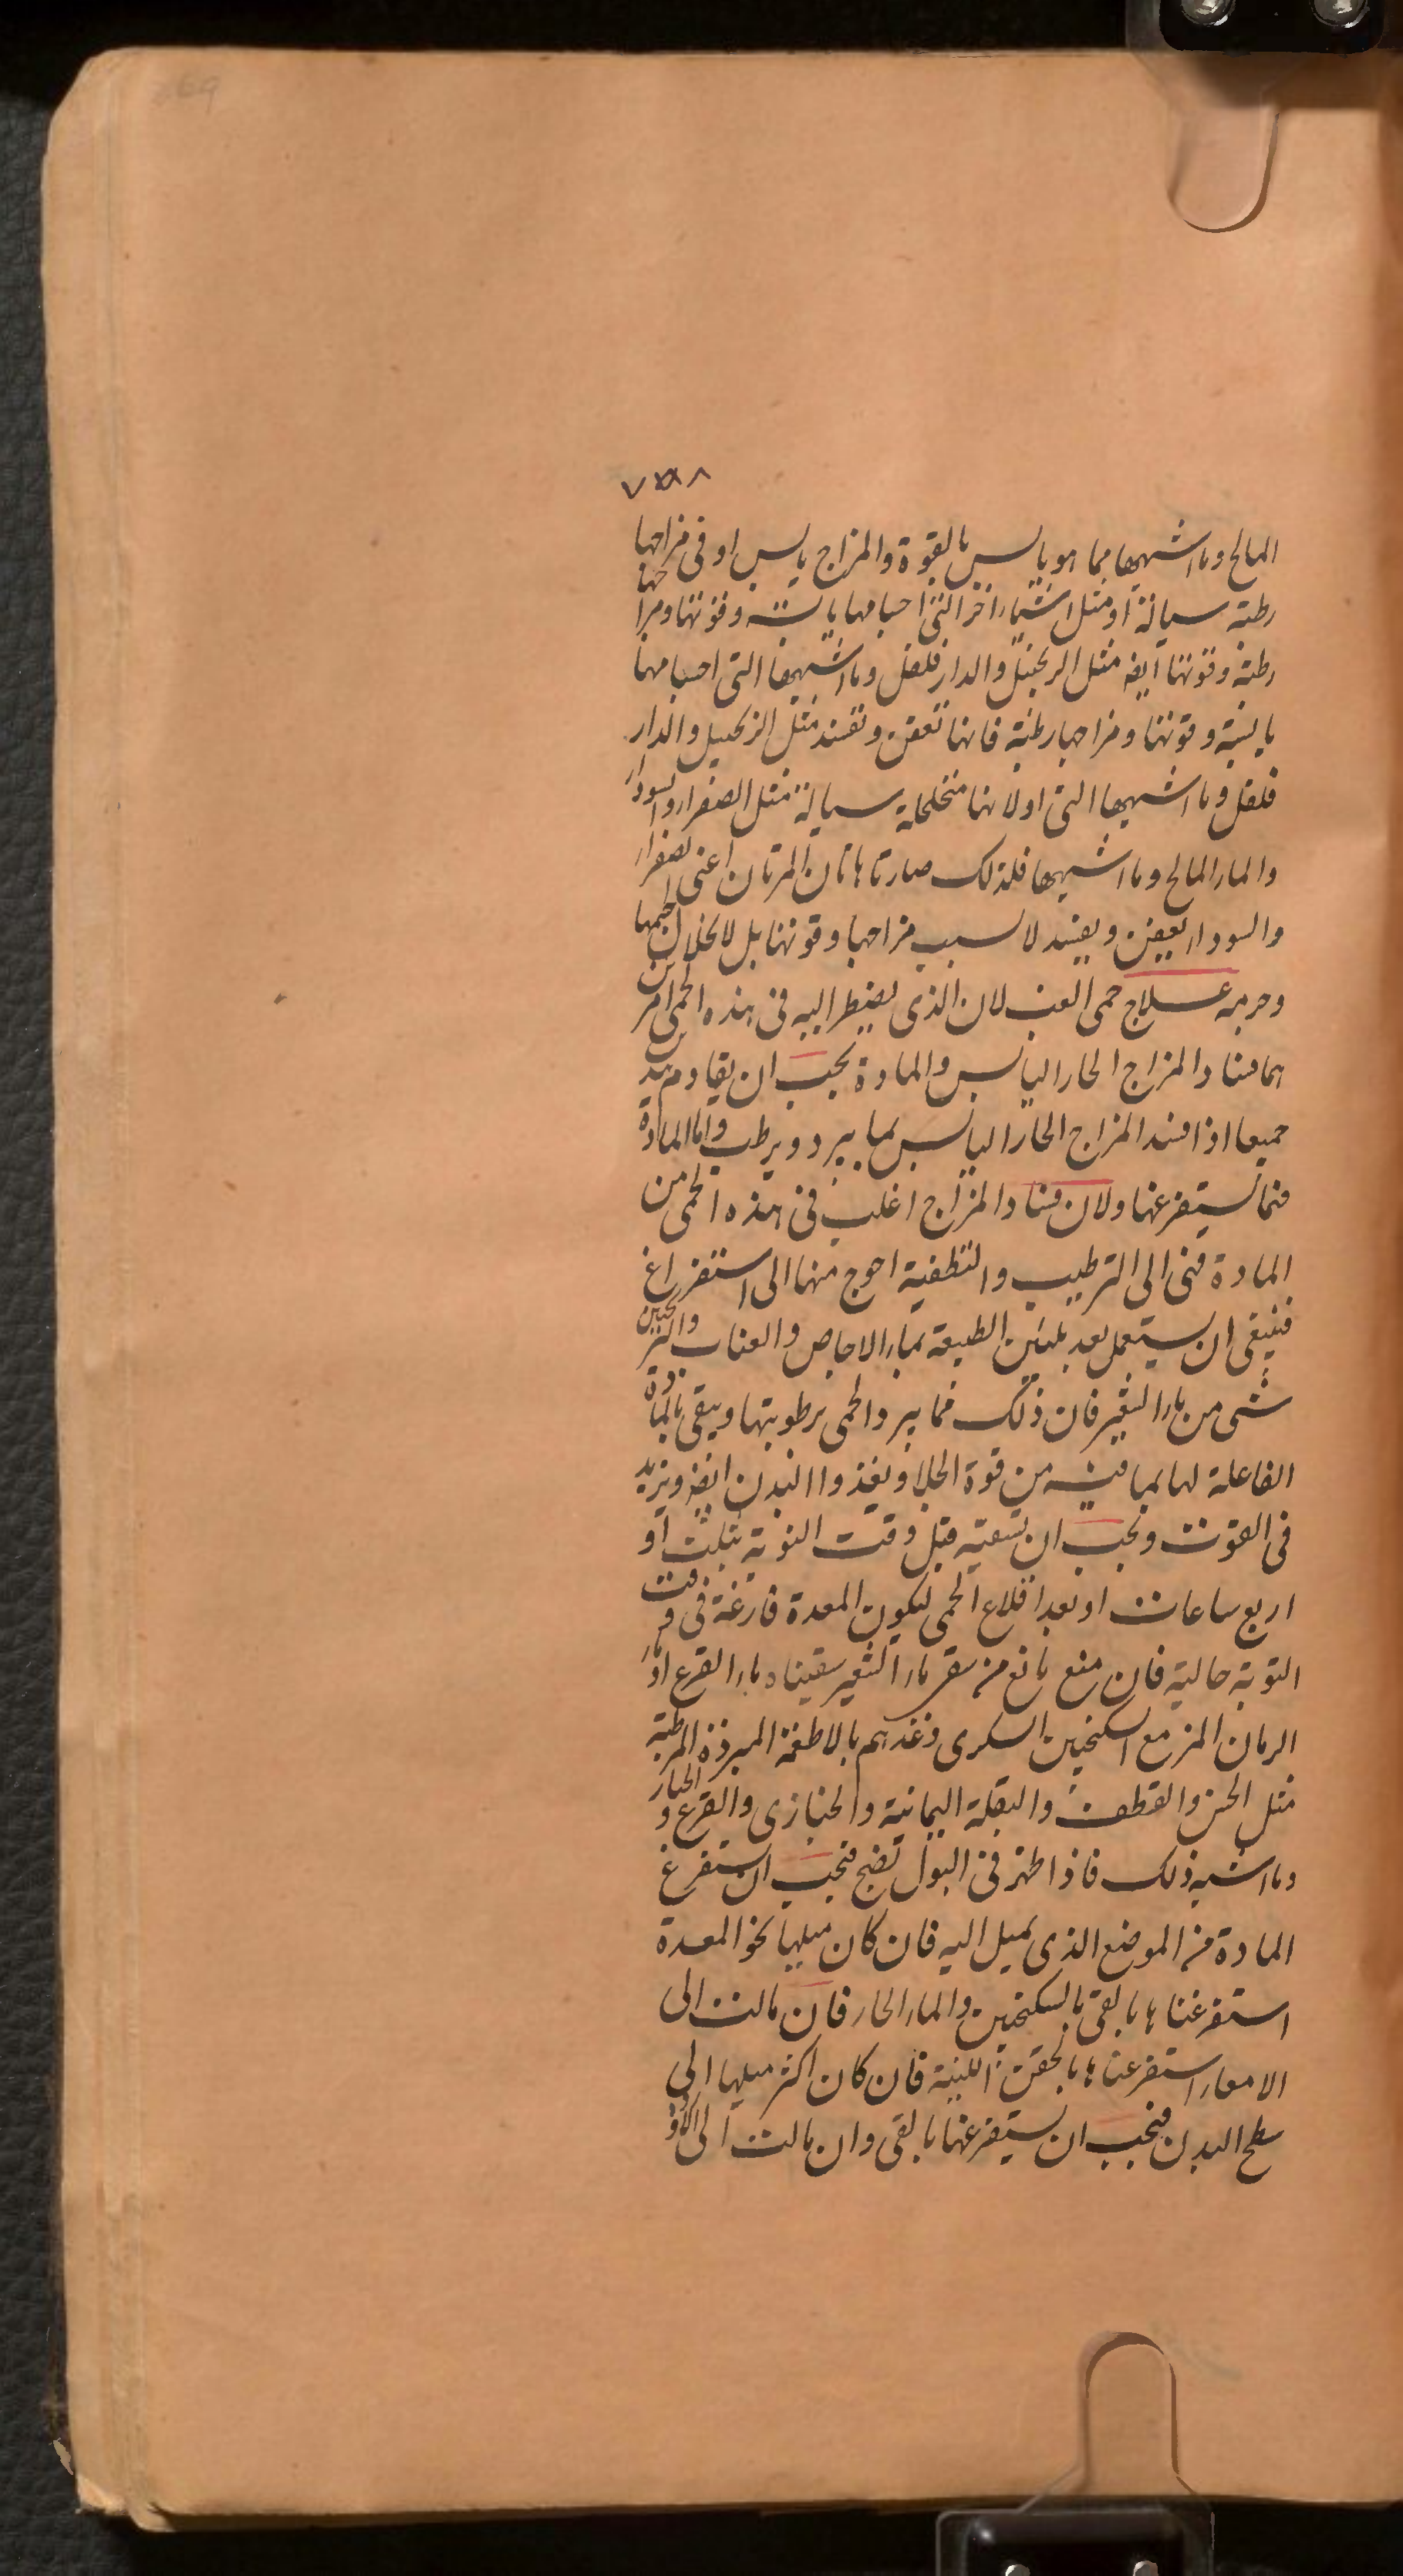 ٧٥٨
المالح وما اشبهها مما هو يابس بالقوة والمزاج يابس او فى مزاجها
رطبة سيالة او مثل اشياء اخر التى اجسامها يابسة وقوتها ومزاجها
رطبة وقوتها ايضا مثل الزنجبيل والدار فلفل وما اشبهها التى اجسامها
يابسة وقوتها ومزاجها رطبة فانها تعفن وتفسد مثل الزنجبيل والدار
فلفل وما اشبهها التى اولا نها متخلخلة سيالة مثل الصفراء والسوداء
والماء المالح وما اشبهها فلذلك صارتا هاتان المرتان اعنى الصفراء
والسوداء يعفن ويفسد لا بسبب مزاجها وقوتها بل لانحلال جسمها
علاج حمى الغب لان الذى يضطر اليه فى هذه الحمى امرين
هما فساد المزاج الحار اليابس والمادة يجب ان يقاوم هذين
جميعا اذا فسد المزاج الحار اليابس بما يبرد ويرطب واما المادة
فما يستفرغها ولان فساد المزاج اغلب فى هذه الحمى من
المادة فهى الى الترطيب والتطفية احوج منها الى استفراغ
فينبغى ان يستعمل بعد تليين الطبيعة بماء الاجاص والعناب والترنجبين
شى من ماء الشعير فان ذلك مما يبرد الحمى برطوبتها وينقى بالمادة
الفاعلة لها بما فيه من قوة الجلا ويغذوا البدن ايضا ويزيد
فى القوت ويجب ان تسقيه قبل وقت النوبة بثلث او
اربع ساعات او بعد اقلاع الحمى ليكون المعدة فارغة فى وقت
النوبة خالية فان منع مانع من سقى ماء الشعير سقيناه ماء القرع او ماء
الرمان المز مع السكنجبين السكرى وغذهم بالاطعمة المبردة المرطبة
مثل الخس والقطف والبقلة اليمانية والخبازى والقرع والخيار
وما اشبه ذلك فاذا ظهر فى البول نضج فيجب ان يستفرغ
المادة من الموضع الذى تميل اليه فان كان ميلها نحو المعدة
استفرغناها بالقى بالسكنجبين والماء الحار فان مالت الى
الامعاء استفرغناها بالحقن اللينة فان كان اكثر ميلها الى
سطح البدن فيجب ان يستفرغها بالقى وان مالت الى